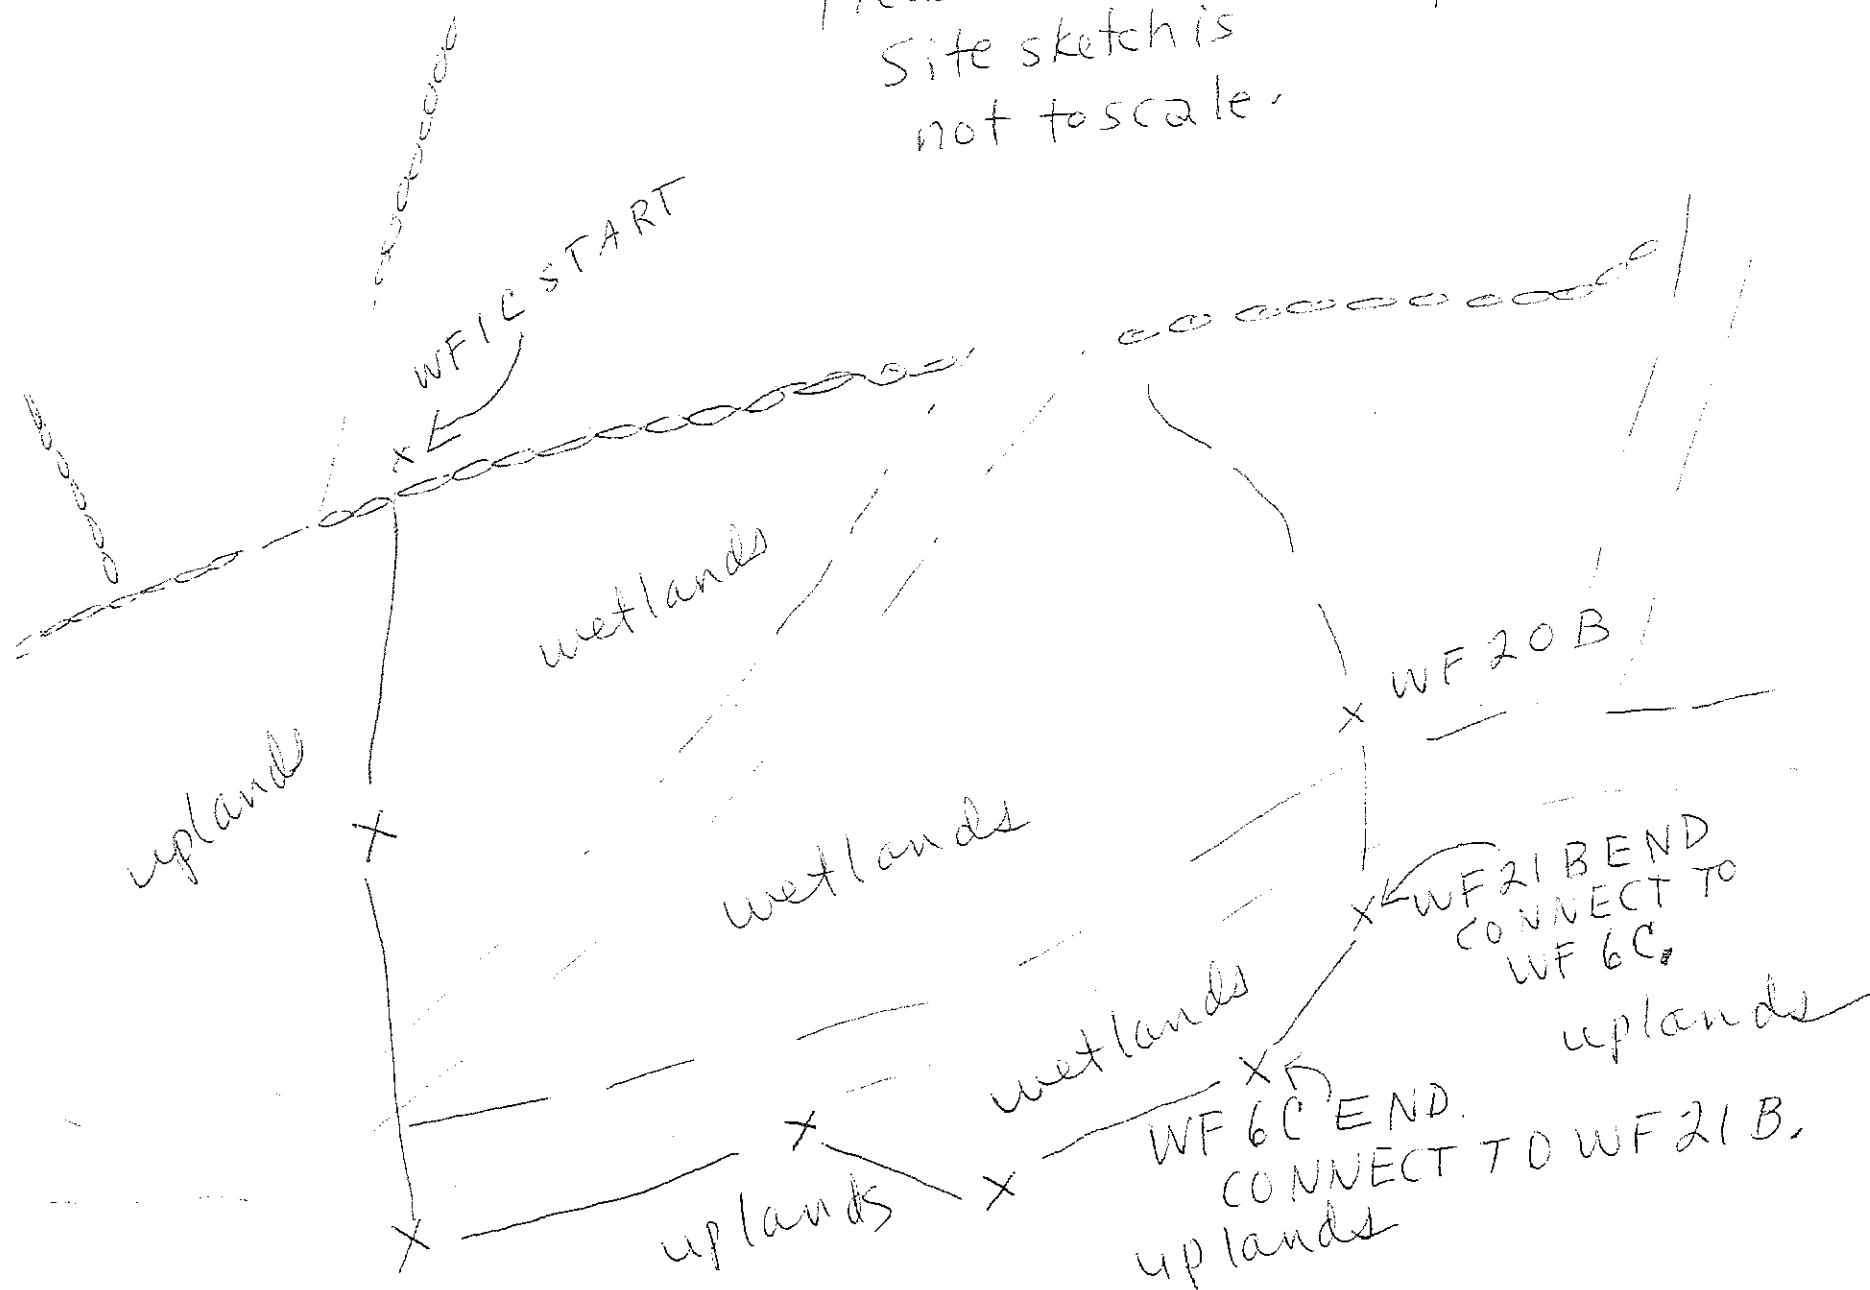 Site sketch is
not to scale.
WF1C START
wetlands
WF20B
uplands
wetlands
WF21B END
CONNECT TO
WF6C.
wetlands
uplands
WF6C END.
CONNECT TO WF21B.
uplands
uplands